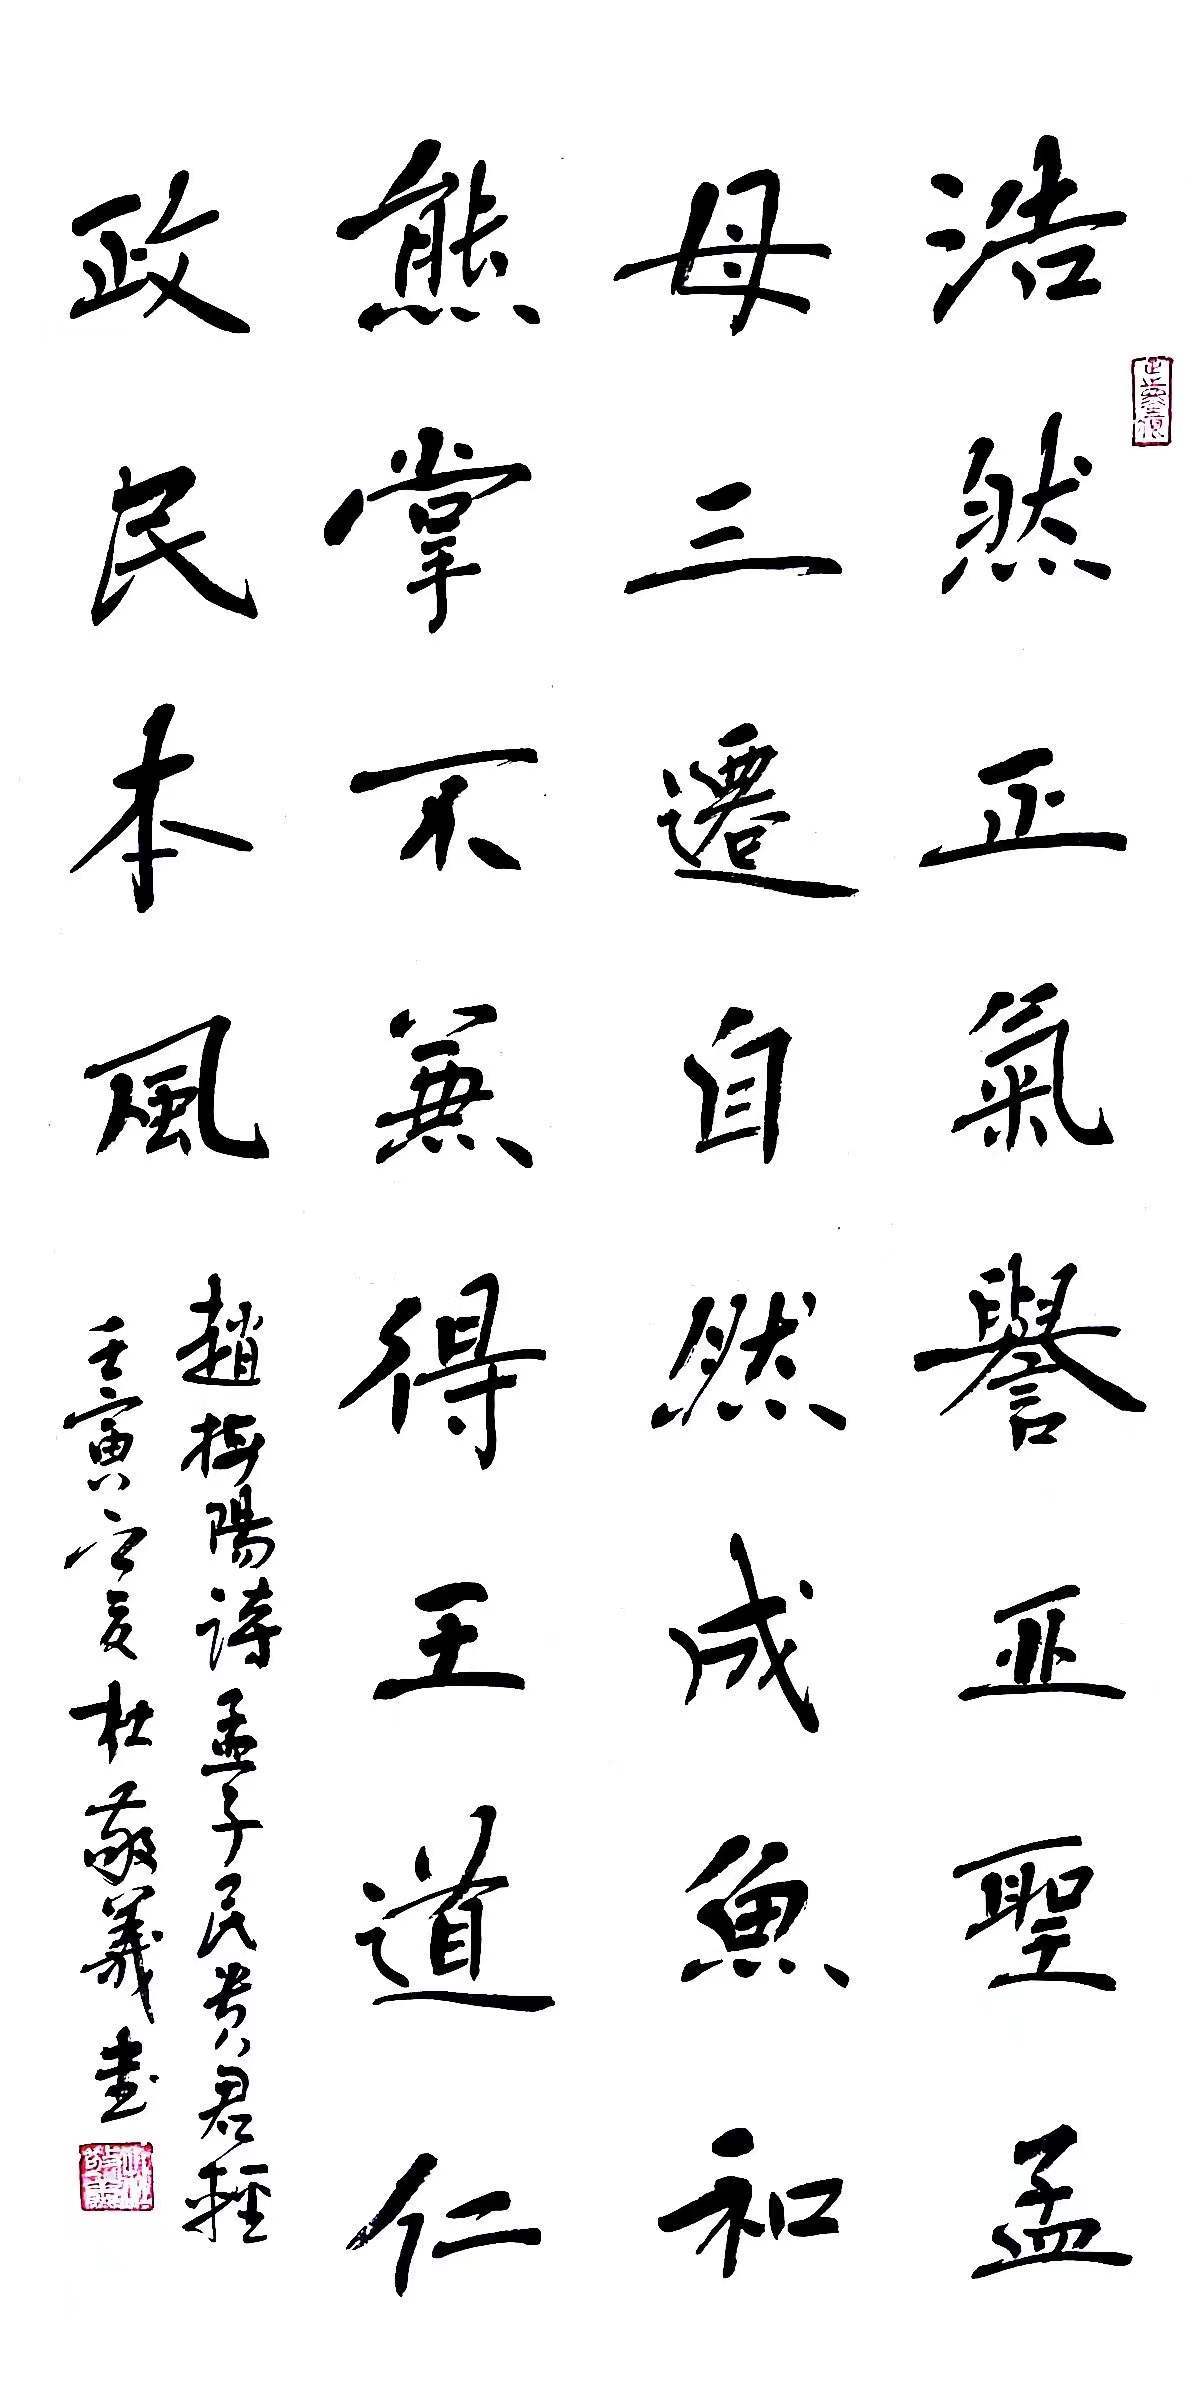 浩然正氣譽亞聖孟
母三遷自然成魚和
熊掌不兼得王道仁
政民本風
趙梅陽詩孟子民貴君輕
壬寅之夏杜敬義書